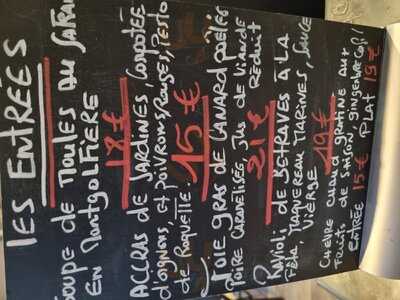 LES ENTRÉES
SOUPE DE MOULES AU SAFRAN
EN MONTGOLFIÈRE
18 €
ACCRAS DE SARDINES, COMPOTÉE
d'oignons, et poivrons Rouges, Pesto
de Roquette. 15 €
Foie gras de CANARD poêlée
POIRE CARAMÉLISÉE Jus de Viande
RÉDUIT
21 €
Ravioli, de BETRAVES À LA
FÊTA, MAQUEREAU MARINÉS, SAUCE
VIERGE 19€
CHÈVRE CHAUD GRATINÉ AUX
FRUITS DE SAISON,
ENTRÉE 15 € PLAT 19 €